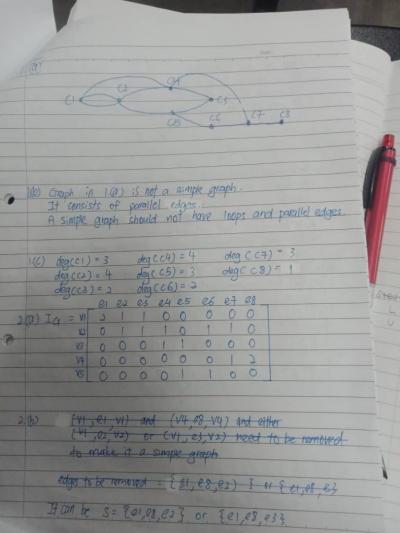 1(a)
C1 C2 C4 C3
C5 C6 C7 C8
1(b) Graph in 1(a) is not a simple graph.
It consists of parallel edges.
A simple graph should not have loops and parallel edges.
1(c) deg(C1) = 3 deg(C4) = 4 deg(C7) = 3
deg(C2) = 4 deg(C5) = 3 deg(C8) = 1
deg(C3) = 2 deg(C6) = 2
e1 e2 e3 e4 e5 e6 e7 e8
2.(a) IG = V1 2 1 1 0 0 0 0 0
V2 0 1 1 1 0 1 1 0
V3 0 0 0 1 1 0 0 0
V4 0 0 0 0 0 0 1 2
V5 0 0 0 0 1 1 0 0
2.(b) (V1, e1, V1) and (V4, e8, V4) and either
(V1, e2, V2) or (V1, e3, V2) need to be removed
to make it a simple graph
edges to be removed = {e1, e8, e2} or {e1, e8, e3
It can be S = {e1, e8, e2} or {e1, e8, e3}